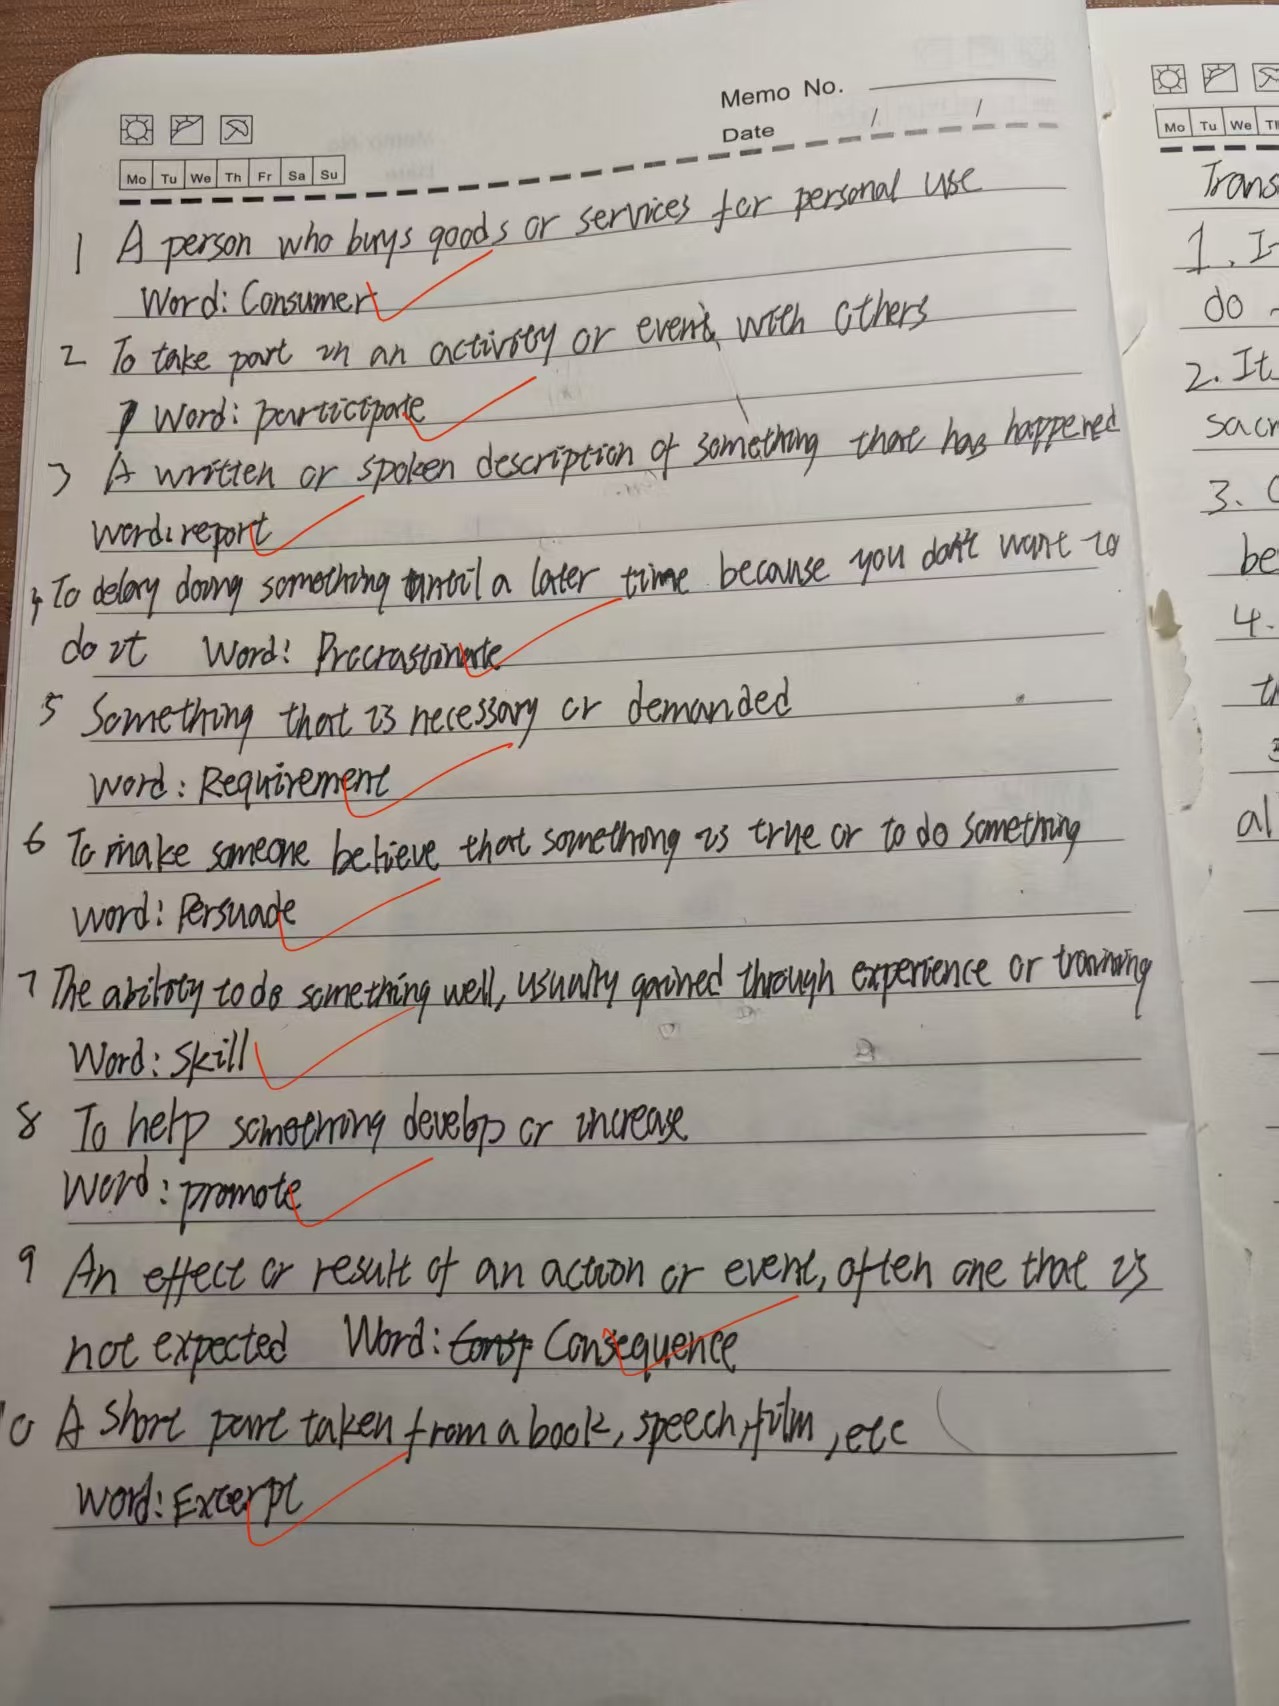 Memo No.
Date / /
Mo Tu We Th Fr Sa Su
1 A person who buys goods or services for personal use
Word: Consumer
2 To take part in an activity or event with others
Word: participate
3 A written or spoken description of something that has happened
Word: report
4 To delay doing something until a later time because you don't want to
do it Word: Procrastinate
5 Something that is necessary or demanded
Word: Requirement
6 To make someone believe that something is true or to do something
Word: Persuade
7 The ability to do something well, usually gained through experience or training
Word: Skill
8 To help something develop or increase
Word: promote
9 An effect or result of an action or event, often one that is
not expected Word: Consequence
10 A short part taken from a book, speech, film, etc
Word: Excerpt
Mo Tu We
Trans
1. I
do
2. It
sacr
3.
be
4.
th
al